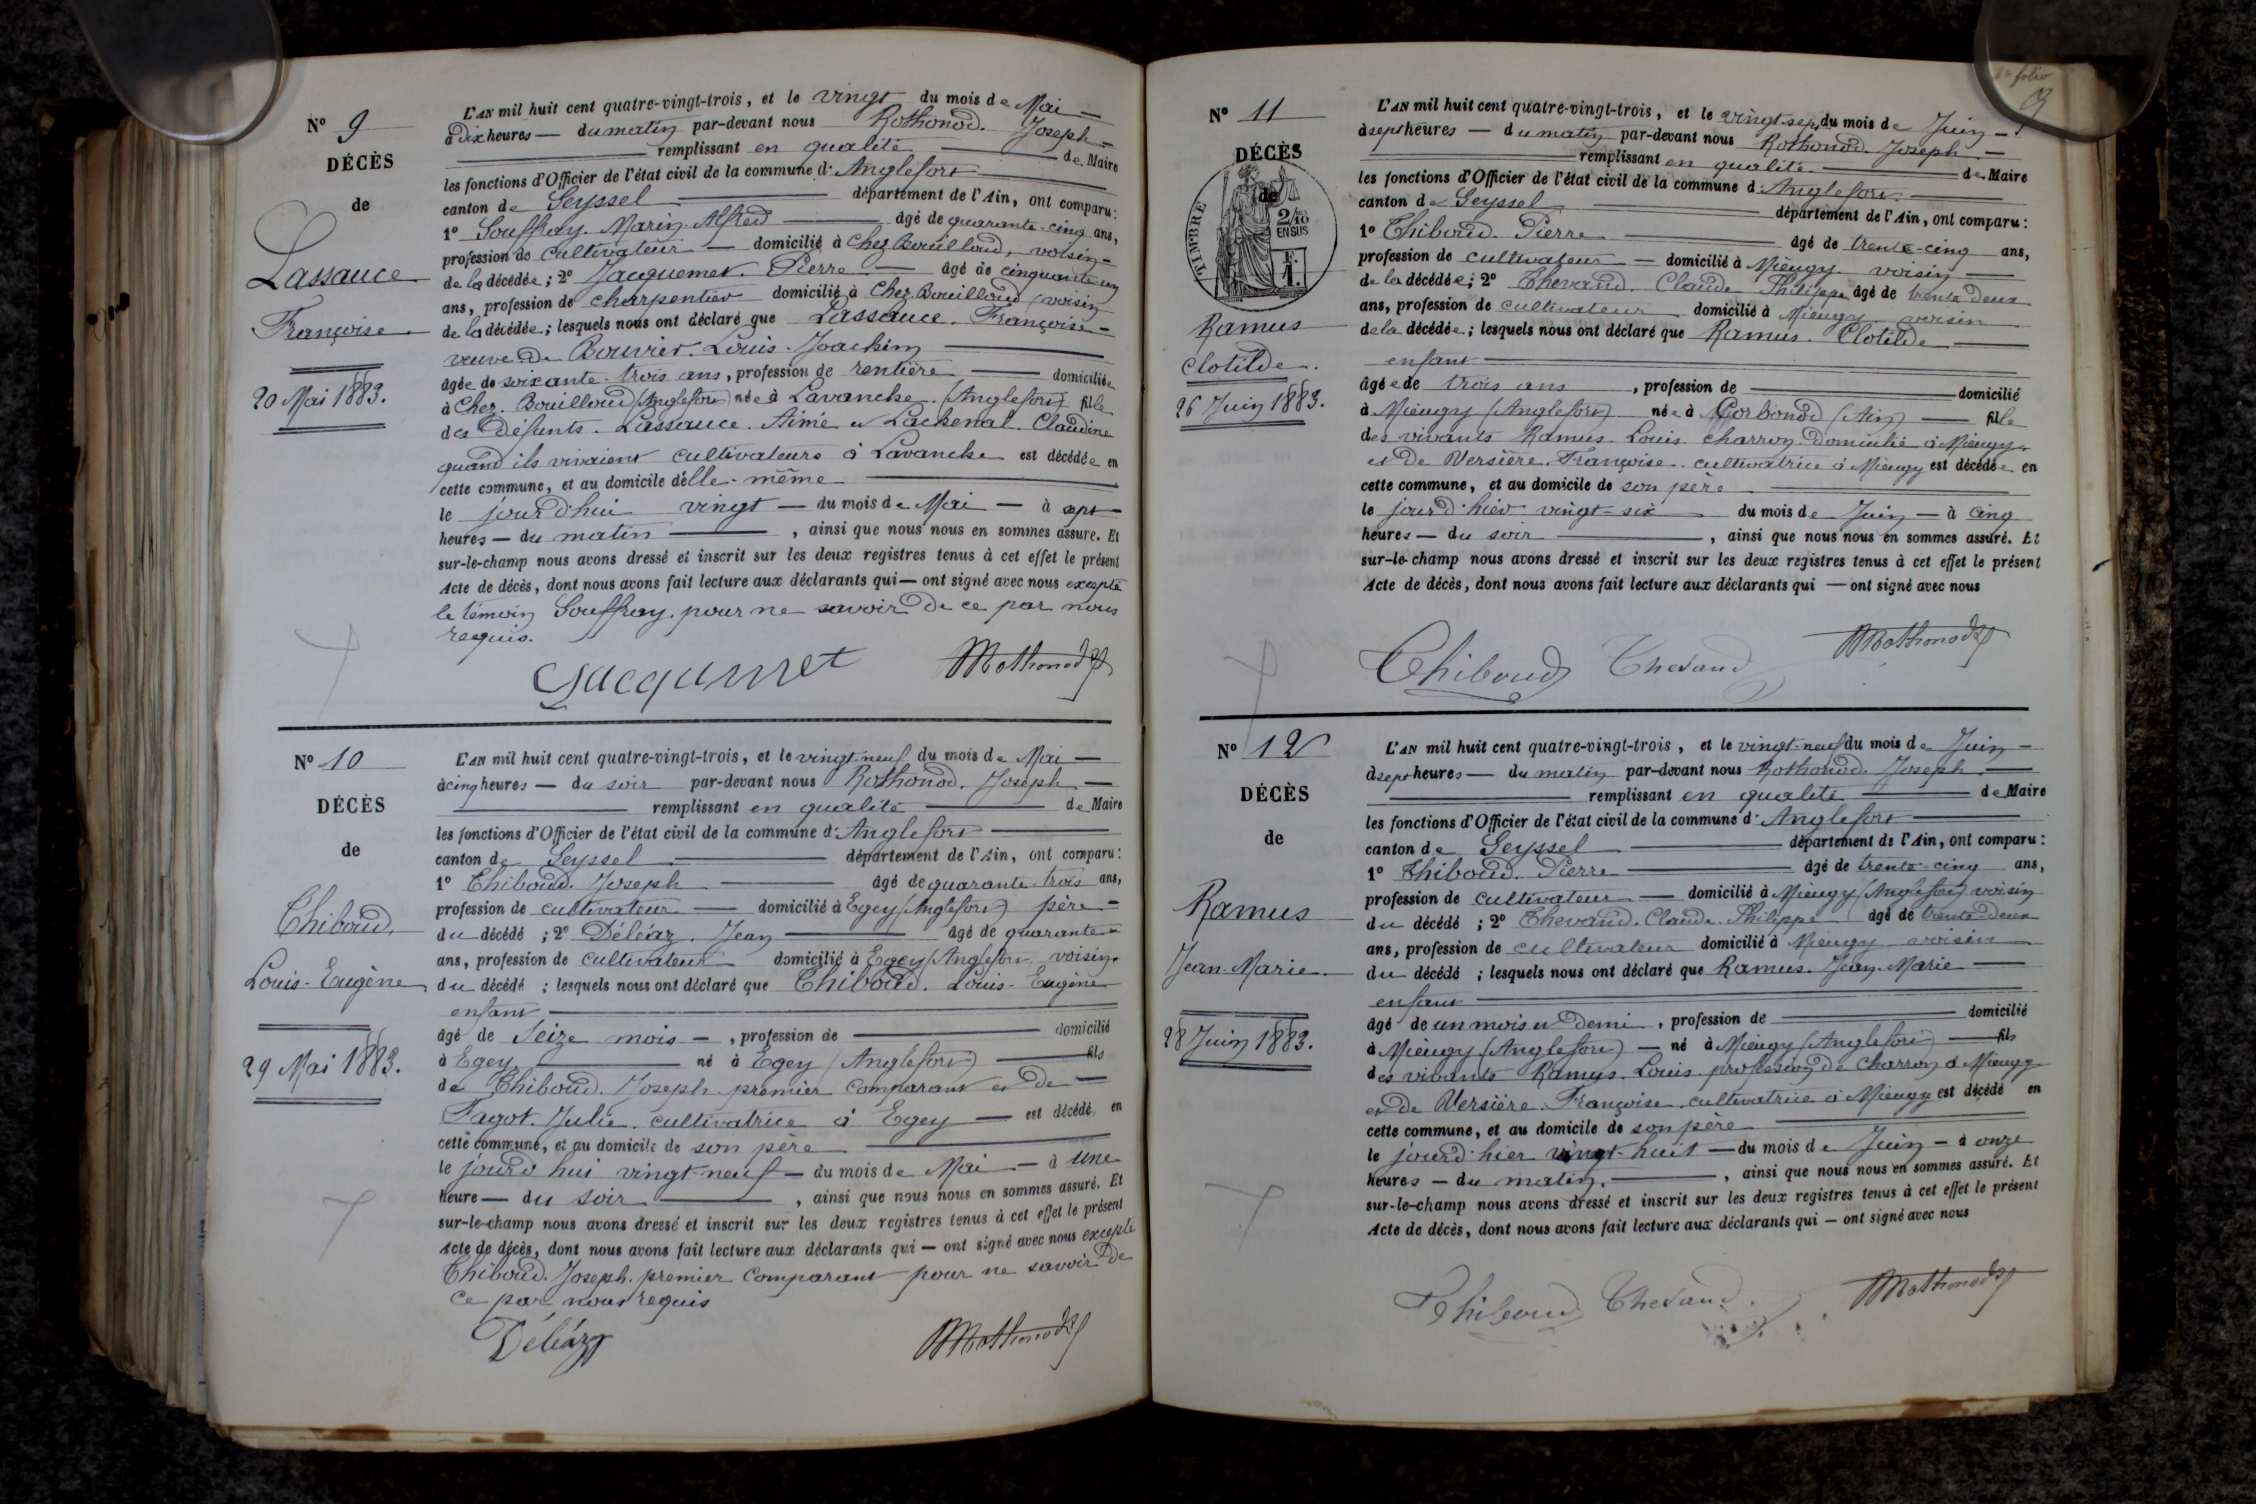 N° 9
DÉCÈS
de
Lassauce
Françoise
20 Mai 1883.
L'AN mil huit cent quatre-vingt-trois, et le vingt du mois de Mai
à dix heures du matin par-devant nous Rothonod. Joseph
remplissant en qualité de Maire
les fonctions d'Officier de l'état civil de la commune d'Anglefort
canton de Seyssel département de l'Ain, ont comparu:
1° Souffray. Marin. Alfred âgé de quarante-cinq ans,
profession de cultivateur domicilié à Chez Bouilloud, voisin
de la décédée; 2° Jacquemet. Pierre âgé de cinquante un
ans, profession de charpentier domicilié à Chez. Bouilloud, voisin
de la décédée; lesquels nous ont déclaré que Lassauce. Françoise
veuve de Bouvier. Louis. Joachim
âgée de soixante-trois ans, profession de rentière domiciliée
à Chez. Bouilloud (Anglefort) née à Lavanche. (Anglefort) fille
des défunts. Lassauce. Aimé et Lachenal. Claudine
quand ils vivaient cultivateurs à Lavanche est décédée en
cette commune, et au domicile d'elle-même
le jourd'hui vingt du mois de Mai à sept
heures du matin, ainsi que nous nous en sommes assuré. Et
sur-le-champ nous avons dressé et inscrit sur les deux registres tenus à cet effet le présent
Acte de décès, dont nous avons fait lecture aux déclarants qui ont signé avec nous excepté
le témoin Souffray. pour ne savoir de ce par nous
requis.
Jacquemet Rothonod
N° 10
DÉCÈS
de
Thiboud.
Louis-Eugène
29 Mai 1883.
L'AN mil huit cent quatre-vingt-trois, et le vingt-neuf du mois de Mai
à cinq heures du soir par-devant nous Rothonod. Joseph
remplissant en qualité de Maire
les fonctions d'Officier de l'état civil de la commune d'Anglefort
canton de Seyssel département de l'Ain, ont comparu:
1° Thiboud. Joseph âgé de quarante-trois ans,
profession de cultivateur domicilié à Egey (Anglefort) père
du décédé; 2° Déléaz. Jean âgé de quarante
ans, profession de cultivateur domicilié à Egey (Anglefort) voisin
du décédé; lesquels nous ont déclaré que Thiboud. Louis-Eugène
enfant
âgé de seize mois, profession de domicilié
à Egey né à Egey (Anglefort) fils
de Thiboud. Joseph. premier comparant et de
Fagot. Julie. cultivatrice à Egey est décédé en
cette commune, et au domicile de son père
le jourd'hui vingt-neuf du mois de Mai à une
heure du soir, ainsi que nous nous en sommes assuré. Et
sur-le-champ nous avons dressé et inscrit sur les deux registres tenus à cet effet le présent
Acte de décès, dont nous avons fait lecture aux déclarants qui ont signé avec nous excepté
Thiboud. Joseph. premier comparant pour ne savoir de
ce par nous requis
Déléaz Rothonod
folio
N° 11
DÉCÈS
de
TIMBRE
2/10
EN SUS
F.
1.
Ramus
Clotilde.
26 Juin 1883.
L'AN mil huit cent quatre-vingt-trois, et le vingt-sept du mois de Juin
à sept heures du matin par-devant nous Rothonod. Joseph
remplissant en qualité de Maire
les fonctions d'Officier de l'état civil de la commune d'Anglefort
canton de Seyssel département de l'Ain, ont comparu:
1° Thiboud. Pierre âgé de trente-cinq ans,
profession de cultivateur domicilié à Mieugy. voisin
de la décédée; 2° Thevand. Claude Philippe âgé de trente deux
ans, profession de cultivateur domicilié à Mieugy. voisin
de la décédée; lesquels nous ont déclaré que Ramus. Clotilde
enfant
âgée de trois ans, profession de domicilié
à Mieugy (Anglefort) née à Corbonod (Ain) fille
des vivants Ramus. Louis charron domicilié à Mieugy.
et de Versière. Françoise. cultivatrice à Mieugy est décédée en
cette commune, et au domicile de son père
le jourd'hier vingt-six du mois de Juin à cinq
heures du soir, ainsi que nous nous en sommes assuré. Et
sur-le-champ nous avons dressé et inscrit sur les deux registres tenus à cet effet le présent
Acte de décès, dont nous avons fait lecture aux déclarants qui ont signé avec nous
Thiboud Thevand Rothonod
N° 12
DÉCÈS
de
Ramus
Jean-Marie.
28 Juin 1883.
L'AN mil huit cent quatre-vingt-trois, et le vingt-neuf du mois de Juin
à sept heures du matin par-devant nous Rothonod. Joseph
remplissant en qualité de Maire
les fonctions d'Officier de l'état civil de la commune d'Anglefort
canton de Seyssel département de l'Ain, ont comparu:
1° Thiboud. Pierre âgé de trente-cinq ans,
profession de cultivateur domicilié à Mieugy (Anglefort) voisin
du décédé; 2° Thevand. Claude. Philippe âgé de trente deux
ans, profession de cultivateur domicilié à Mieugy voisin
du décédé; lesquels nous ont déclaré que Ramus. Jean-Marie
enfant
âgé de un mois et demi, profession de domicilié
à Mieugy (Anglefort) né à Mieugy (Anglefort) fils
des vivants Ramus. Louis. profession de charron à Mieugy
et de Versière. Françoise. cultivatrice à Mieugy est décédé en
cette commune, et au domicile de son père
le jourd'hier vingt-huit du mois de Juin à onze
heures du matin., ainsi que nous nous en sommes assuré. Et
sur-le-champ nous avons dressé et inscrit sur les deux registres tenus à cet effet le présent
Acte de décès, dont nous avons fait lecture aux déclarants qui ont signé avec nous
Thiboud Thevand Rothonod